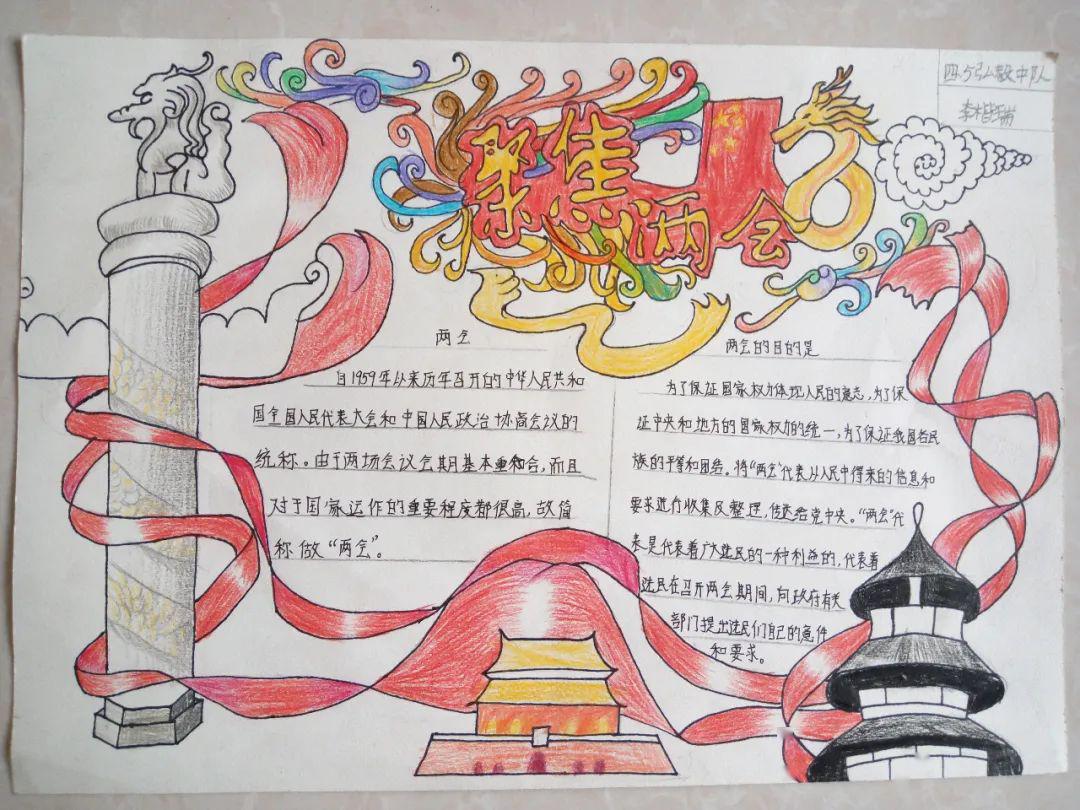 四·5弘毅中队
李楷瑞
聚焦
两会
两会
自1959年以来历年召开的中华人民共和
国全国人民代表大会和中国人民政治协商会议的
统称。由于两场会议会期基本重和合,而且
对于国家运作的重要程度都很高,故简
称做“两会”。
两会的目的是
为了保证国家权力体现人民的意志,为了保
证中央和地方的国家权力的统一,为了保证我国各民
族的平等和团结。将“两会”代表从人民中得来的信息和
要求进行收集及整理,传达给党中央。“两会”代
表是代表着广大选民的一种利益的,代表着
选民在召开两会期间,向政府有关
部门提出选民们自己的意件
和要求。